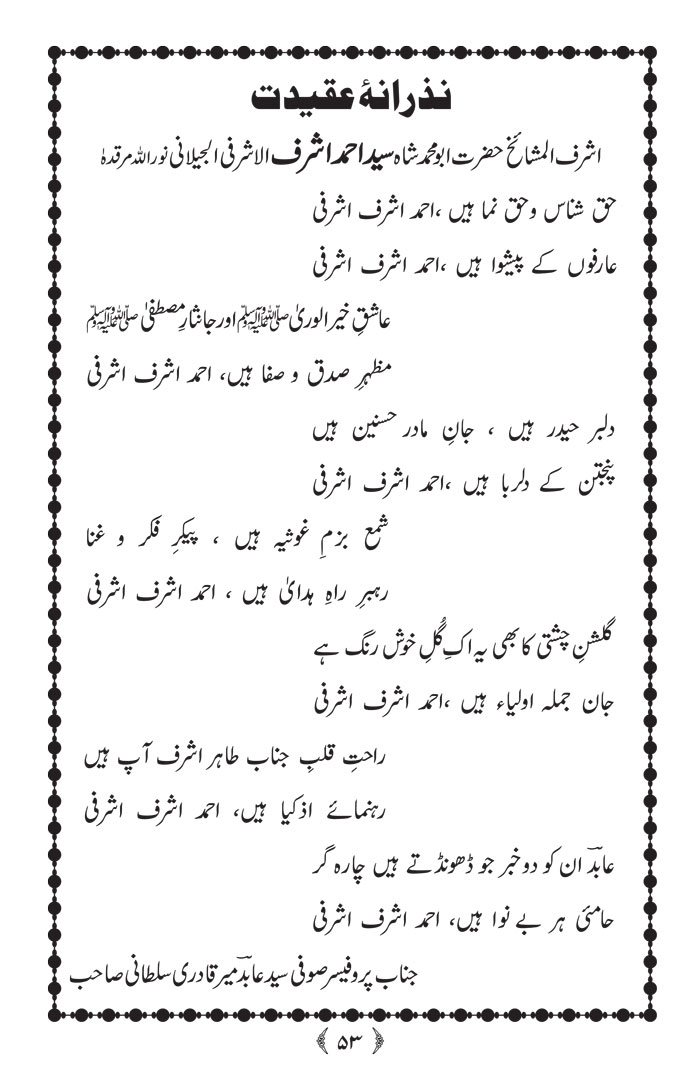 نذرانۂ عقیدت
اشرف المشائخ حضرت ابومحمد شاہ سید احمد اشرف الاشرفی الجیلانی نوراللہ مرقدہٗ
حق شناس وحق نما ہیں ،احمد اشرف اشرفی
عارفوں کے پیشوا ہیں ،احمد اشرف اشرفی
عاشقِ خیرالوریٰ ﷺ اور جانثارِ مصطفیٰ ﷺ
مظہرِ صدق و صفا ہیں، احمد اشرف اشرفی
دلبر حیدر ہیں ، جانِ مادر حسنین ہیں
پنجتن کے دلربا ہیں ،احمد اشرف اشرفی
شمع بزمِ غوثیہ ہیں ، پیکرِ فکر و غنا
رہبرِ راہِ ہدایٰ ہیں ، احمد اشرف اشرفی
گلشنِ چشتی کا بھی یہ اک گُلِ خوش رنگ ہے
جان جملہ اولیاء ہیں ،احمد اشرف اشرفی
راحتِ قلبِ جناب طاہر اشرف آپ ہیں
رہنمائے اذکیا ہیں، احمد اشرف اشرفی
عابدؔ ان کو دو خبر جو ڈھونڈتے ہیں چارہ گر
حامئی ہر بے نوا ہیں، احمد اشرف اشرفی
جناب پروفیسر صوفی سید عابدؔ میر قادری سلطانی صاحب
﴿ ۵۳ ﴾